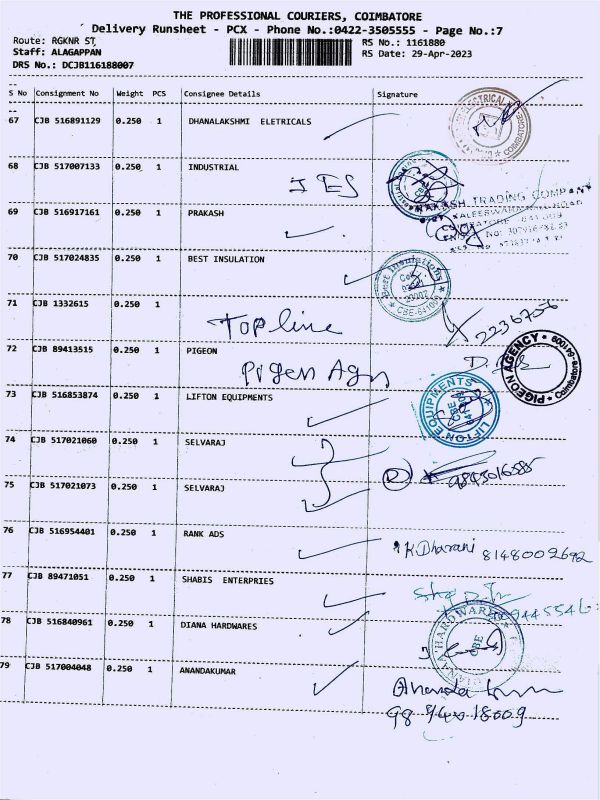 THE PROFESSIONAL COURIERS, COIMBATORE
Delivery Runsheet - PCX - Phone No.:0422-3505555 - Page No.:7
Route: RGKNR ST
Staff: ALAGAPPAN
DRS No.: DCJB116188007
RS No.: 1161880
RS Date: 29-Apr-2023
S No Consignment No Weight PCS Consignee Details Signature
67 CJB 516891129 0.250 1 DHANALAKSHMI ELETRICALS
COIMBATORE
68 CJB 517007133 0.250 1 INDUSTRIAL
IES
TRADING COMPANY
69 CJB 516917161 0.250 1 PRAKASH
70 CJB 517024835 0.250 1 BEST INSULATION
Best Insulations
CBE-641009
71 CJB 1332615 0.250 1
Top line
2236756
72 CJB 89413515 0.250 1 PIGEON
Pigen Agn
PIGEON AGENCY
Coimbatore-641009
73 CJB 516853874 0.250 1 LIFTON EQUIPMENTS
LIFTON EQUIPMENTS
CBE
74 CJB 517021060 0.250 1 SELVARAJ
75 CJB 517021073 0.250 1 SELVARAJ
76 CJB 516954401 0.250 1 RANK ADS
K.Dharani 8148009692
77 CJB 89471051 0.250 1 SHABIS ENTERPRIES
78 CJB 516840961 0.250 1 DIANA HARDWARES
DIANA HARDWARE
CBE
79 CJB 517004048 0.250 1 ANANDAKUMAR